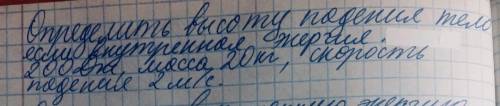 Определить высоту падения тел
если внутренная энергия
200 Дж, масса 20кг, скорость
падение 2 м/с.